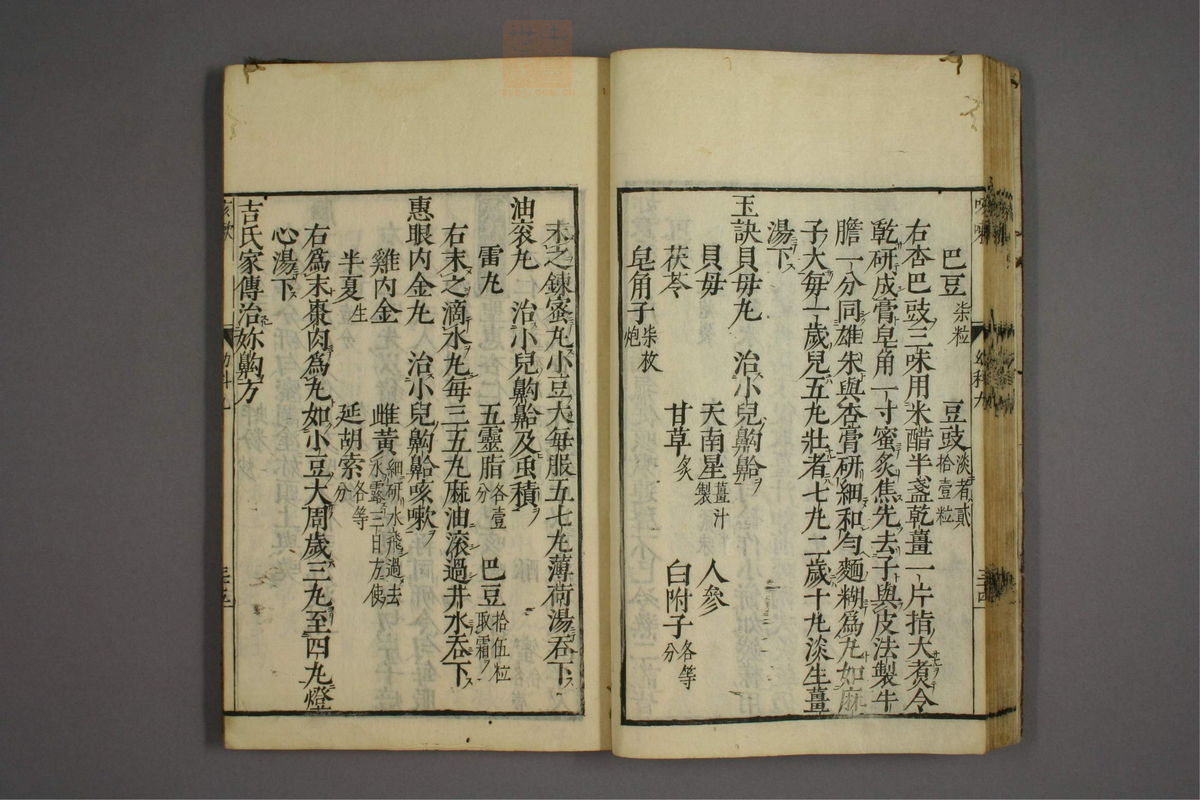 巴豆柒粒　豆豉淡者貳拾壹粒
右杏巴豉三味用米醋半盞乾薑一片指大煮令
乾研成膏皂角一寸蜜炙焦先去子與皮法製牛
膽一分同雄朱與杏膏研細和勻麵糊爲丸如麻
子大每一歲兒五丸壯者七丸二歲十丸淡生薑
湯下
玉訣貝母丸　治小兒齁䶎
貝母　天南星薑汁製　人參
茯苓　甘草炙　白附子各等分
皂角子柒枚炮
末之鍊蜜丸小豆大每服五七丸薄荷湯吞下
油衮丸　治小兒齁䶎及虫積
雷丸　五靈脂各壹分　巴豆拾伍粒取霜
右末之滴水丸每三五丸麻油滾過井水吞下
惠眼内金丸　治小兒齁䶎咳嗽
雞内金　雌黃細研水飛過去水露三日方使
半夏生　延胡索各等分
右爲末棗肉爲丸如小豆大周歲三丸至四丸燈
心湯下
吉氏家傳治妳齁方